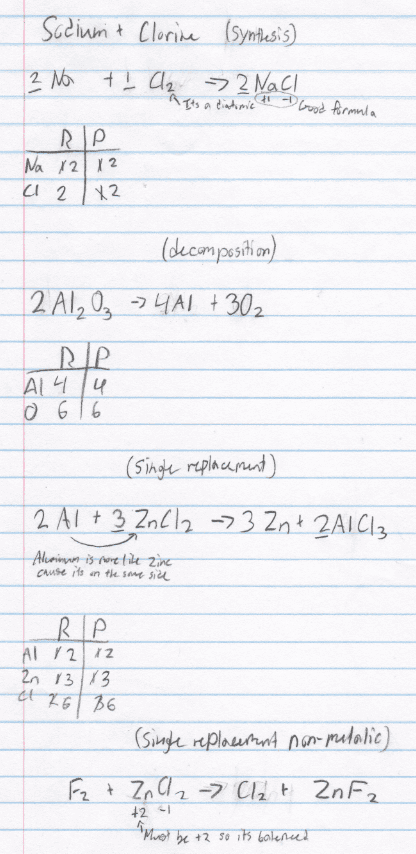 Sodium + Clorine (synthesis)
2 Na + 1 Cl2 → 2 NaCl
It's a diatomic +1 -1 Good formula
R | P
Na 1 2 | 1 2
Cl 2 | 1 2
(decomposition)
2Al2O3 → 4Al + 3O2
R | P
Al 4 | 4
O 6 | 6
(single replacement)
2 Al + 3 ZnCl2 → 3 Zn + 2AlCl3
Aluminum is more like Zinc
cause its on the same side
R | P
Al 1 2 | 1 2
Zn 1 3 | 1 3
Cl 2 6 | 3 6
(single replacement non-metalic)
F2 + ZnCl2 → Cl2 + ZnF2
+2 -1
Must be +2 so its balenced